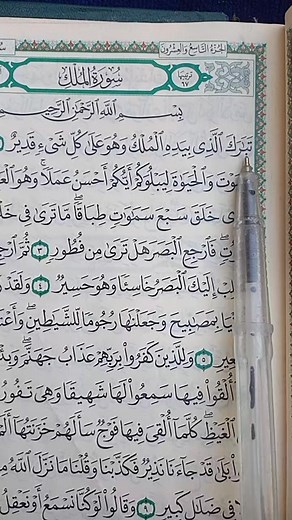 الجُزءُ التَّاسِعُ وَالعِشرُونَ
سُورَةُ المُلْكِ
ترتيبها ٦٧
بِسْمِ ٱللَّهِ ٱلرَّحْمَٰنِ ٱلرَّحِيمِ
تَبَٰرَكَ ٱلَّذِى بِيَدِهِ ٱلْمُلْكُ وَهُوَ عَلَىٰ كُلِّ شَىْءٍ قَدِيرٌ
وَٱلْحَيَوٰةَ لِيَبْلُوَكُمْ أَيُّكُمْ أَحْسَنُ عَمَلًا وَهُوَ
خَلَقَ سَبْعَ سَمَٰوَٰتٍ طِبَاقًا مَّا تَرَىٰ فِى
فَٱرْجِعِ ٱلْبَصَرَ هَلْ تَرَىٰ مِن فُطُورٍ ٣ ثُمَّ
إِلَيْكَ ٱلْبَصَرُ خَاسِئًا وَهُوَ حَسِيرٌ ٤ وَلَقَدْ
بِمَصَٰبِيحَ وَجَعَلْنَٰهَا رُجُومًا لِّلشَّيَٰطِينِ
٥ وَلِلَّذِينَ كَفَرُوا۟ بِرَبِّهِمْ عَذَابُ جَهَنَّمَ
أُلْقُوا۟ فِيهَا سَمِعُوا۟ لَهَا شَهِيقًا وَهِىَ تَفُورُ
ٱلْغَيْظِ كُلَّمَآ أُلْقِىَ فِيهَا فَوْجٌ سَأَلَهُمْ خَزَنَتُهَآ
بَلَىٰ قَدْ جَآءَنَا نَذِيرٌ فَكَذَّبْنَا وَقُلْنَا مَا نَزَّلَ ٱللَّهُ
فِى ضَلَٰلٍ كَبِيرٍ ٩ وَقَالُوا۟ لَوْ كُنَّا نَسْمَعُ أَوْ نَعْقِلُ